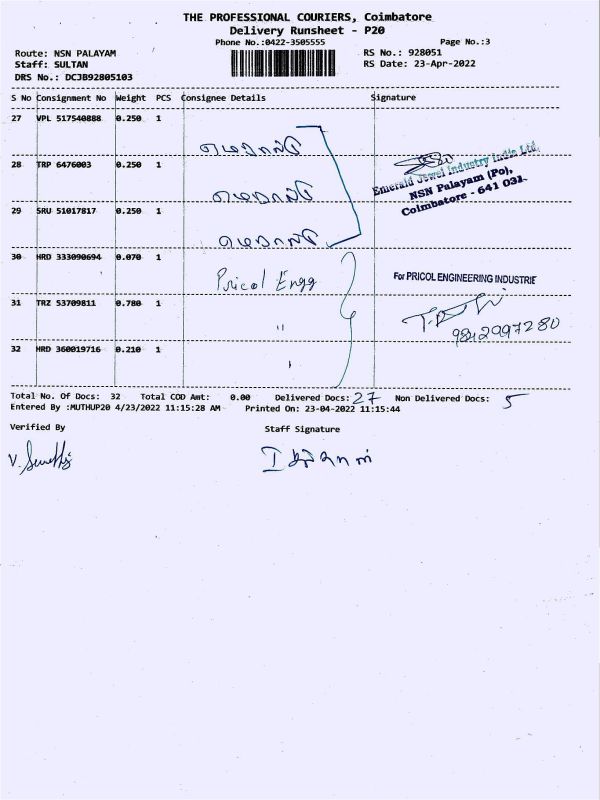 THE PROFESSIONAL COURIERS, Coimbatore
Delivery Runsheet - P20
Phone No.:0422-3505555 Page No.:3
Route: NSN PALAYAM RS No.: 928051
Staff: SULTAN RS Date: 23-Apr-2022
DRS No.: DCJB92805103
S No Consignment No Weight PCS Consignee Details Signature
27 VPL 517540888 0.250 1
எமரால்டு
28 TRP 6476003 0.250 1
எமரால்டு
Emerald Jewel Industry India Ltd.
NSN Palayam (Po),
Coimbatore - 641 031.
29 SRU 51017817 0.250 1
எமரால்டு
30 HRD 333090694 0.070 1
Pricol Engg
For PRICOL ENGINEERING INDUSTRIE
31 TRZ 53709811 0.780 1
"
9842997280
32 HRD 360019716 0.210 1
Total No. Of Docs: 32 Total COD Amt: 0.00 Delivered Docs: 27 Non Delivered Docs: 5
Entered By :MUTHUP20 4/23/2022 11:15:28 AM Printed On: 23-04-2022 11:15:44
Verified By Staff Signature